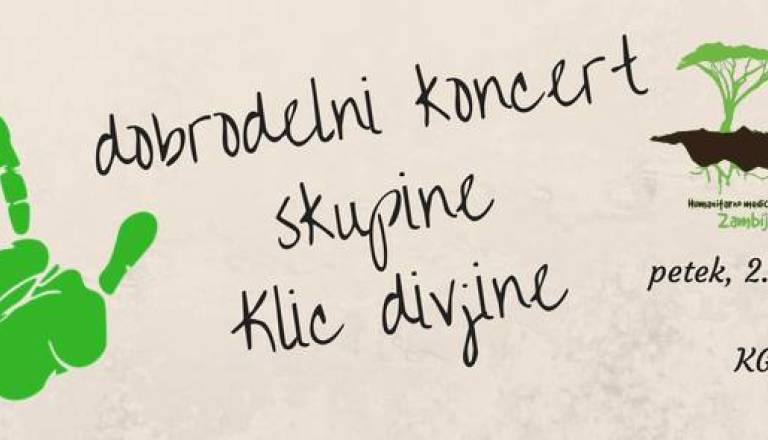 dobrodelni koncert
skupine
Klic divjine
Humanitarno
petek, 2.